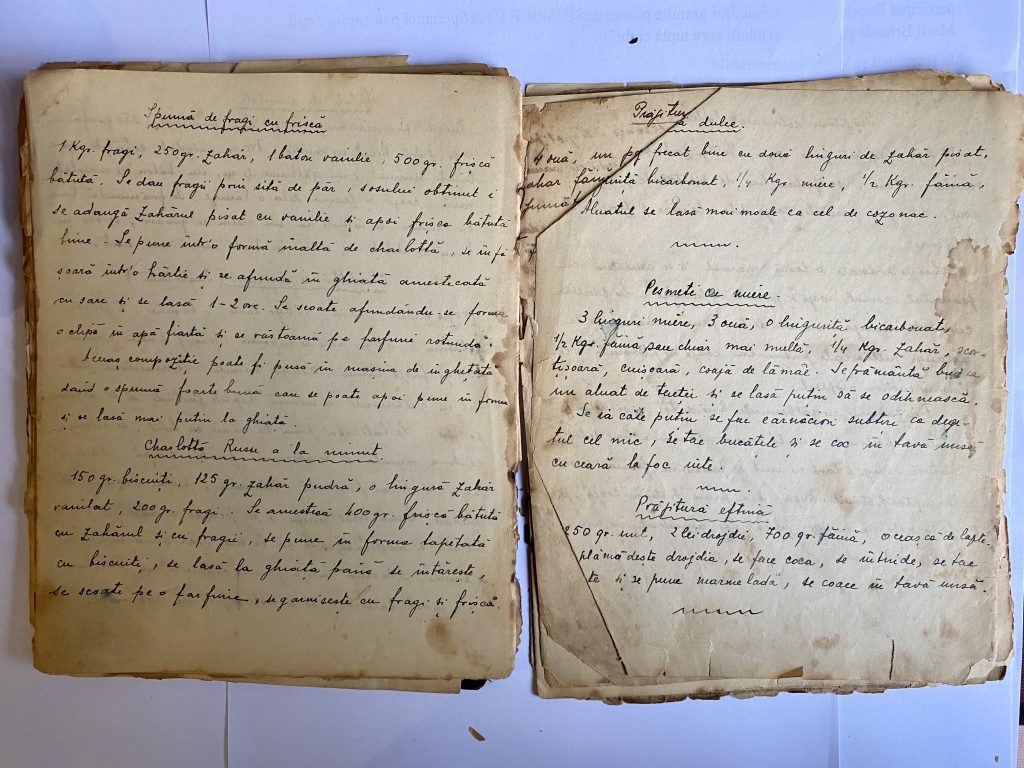 Spumă de fragi cu frișcă
1 Kgr. fragi, 250 gr. zahăr, 1 baton vanilie, 500 gr. frișcă
bătută. Se dau fragii prin sită de păr, sosului obținut i
se adaugă zahărul pisat cu vanilie și apoi frișca bătută
bine. Se pune într'o formă înaltă de charlottă, se înfă
șoară într'o hârtie și se afundă în ghiață amestecată
cu sare și se lasă 1-2 ore. Se scoate afundându-se forma
o clipă în apă fiartă și se răstoarnă pe farfurie rotundă.
Aceiaș compoziție poate fi pusă în mașina de înghețată
dând o spumă foarte bună care se poate apoi pune în forma
și se lasă mai puțin la ghiață
Charlottă Russe a la minut
150 gr. biscuiți, 125 gr. zahăr pudră, o lingură zahăr
vanilat, 200 gr. fragi. Se amestică 400 gr. frișcă bătută
cu zahărul și cu fragii, se pune în forma tapetată
cu biscuiți, se lasă la ghiață până se întărește,
se scoate pe o farfurie, se garnisește cu fragi și frișcă.
dulce.
4 ouă, un frecat bine cu două linguri de zahăr pisat,
bicarbonat, 1/4 Kgr. miere, 1/2 Kgr. făină,
Aluatul se lasă mai moale ca cel de cozonac.
Pesmete cu miere.
3 linguri miere, 3 ouă, o linguriță bicarbonat,
1/2 Kgr. făină sau chiar mai multă, 1/4 Kgr. zahăr, scor-
țișoară, cuișoară, coajă de lămâe. Se frământă bine ca
un aluat de tăeței și se lasă puțin să se odihnească.
Se ia câte puțin se fac cârnăciori subțiri ca dege-
tul cel mic, se tae bucățile și se coc în tavă unsă
cu ceară la foc iute.
Prăjitură eftină
250 gr. unt, 2 lei drojdii, 700 gr. făină, o ceașcă de lapte.
plămădește drojdia, se face coca, se întinde, se tae
și se pune marmeladă, se coace în tavă unsă.